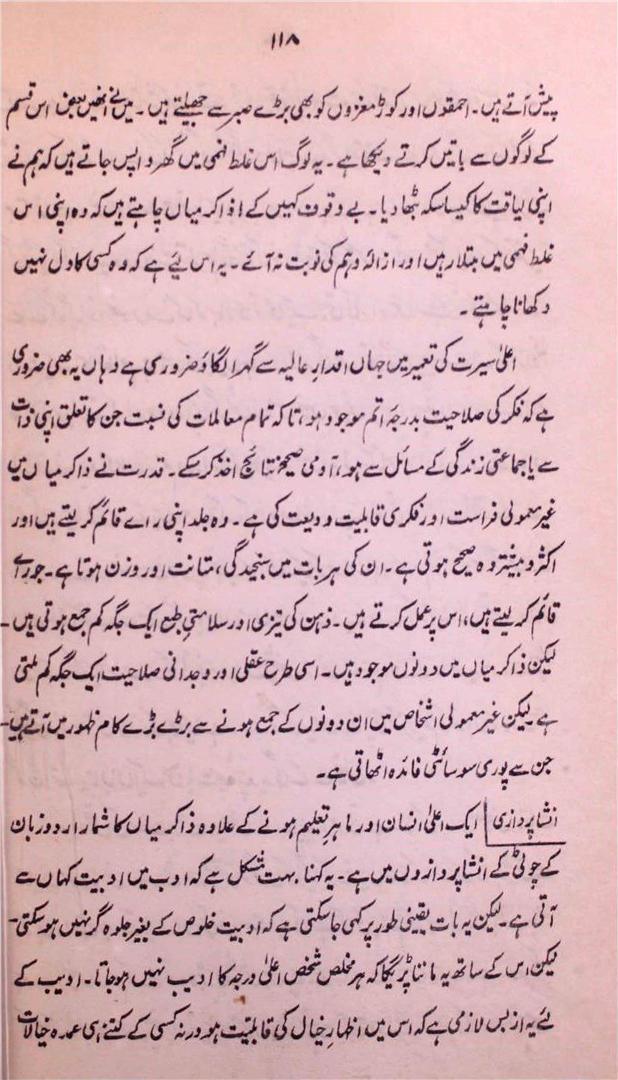 ۱۱۸
پیش آتے ہیں۔ احمقوں اور کوڑ مغزوں کو بھی بڑے صبر سے جھیلتے ہیں۔ میں نے انھیں بعض اس قسم
کے لوگوں سے باتیں کرتے دیکھا ہے۔ یہ لوگ اس غلط فہمی میں گھر واپس جاتے ہیں کہ ہم نے
اپنی لیاقت کا کیسا سکہ بٹھا دیا۔ بے وقوف کہیں کے! ذاکر میاں چاہتے ہیں کہ وہ اپنی اس
غلط فہمی میں مبتلا رہیں اور ازالۂ وہم کی نوبت نہ آئے۔ یہ اس لیے ہے کہ وہ کسی کا دل نہیں
دکھانا چاہتے۔
اعلیٰ سیرت کی تعمیر میں جہاں اقدارِ عالیہ سے گہرا لگاؤ ضروری ہے وہاں یہ بھی ضروری
ہے کہ فکر کی صلاحیت بدرجۂ اتم موجود ہو، تاکہ تمام معاملات کی نسبت جن کا تعلق اپنی ذات
سے یا جماعتی زندگی کے مسائل سے ہو، آدمی صحیح نتائج اخذ کر سکے۔ قدرت نے ذاکر میاں میں
غیر معمولی فراست اور فکری قابلیت ودیعت کی ہے۔ وہ جلد اپنی رائے قائم کر لیتے ہیں اور
اکثر و بیشتر وہ صحیح ہوتی ہے۔ ان کی ہر بات میں سنجیدگی، متانت اور وزن ہوتا ہے۔ جو رائے
قائم کر لیتے ہیں، اس پر عمل کرتے ہیں۔ ذہن کی تیزی اور سلامتیِ طبع ایک جگہ کم جمع ہوتی ہیں۔
لیکن ذاکر میاں میں دونوں موجود ہیں۔ اسی طرح عقلی اور وجدانی صلاحیت ایک جگہ کم ملتی
ہے لیکن غیر معمولی اشخاص میں ان دونوں کے جمع ہونے سے بڑے بڑے کام ظہور میں آتے ہیں۔
جن سے پوری سوسائٹی فائدہ اٹھاتی ہے۔
انشا پردازی ایک اعلیٰ انسان اور ماہرِ تعلیم ہونے کے علاوہ ذاکر میاں کا شمار اردو زبان
کے چوٹی کے انشا پردازوں میں ہے۔ یہ کہنا بہت مشکل ہے کہ ادب میں ادبیت کہاں سے
آتی ہے۔ لیکن یہ بات یقینی طور پر کہی جا سکتی ہے کہ ادبیت خلوص کے بغیر جلوہ گر نہیں ہو سکتی۔
لیکن اس کے ساتھ یہ ماننا پڑیگا کہ ہر مخلص شخص اعلیٰ درجہ کا ادیب نہیں ہو جاتا۔ ادیب کے
لئے یہ از بس لازمی ہے کہ اس میں اظہارِ خیال کی قابلیت ہو ورنہ کسی کے کتنے ہی عمدہ خیالات